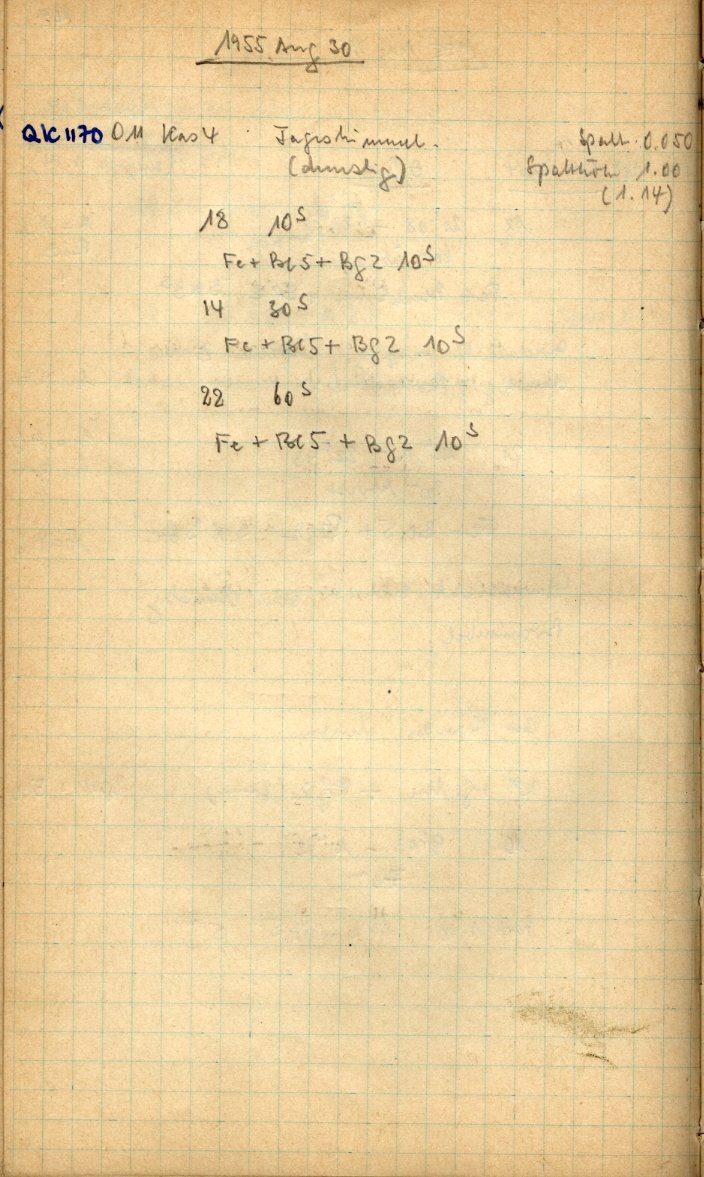 1955 Aug 30
QK 1170 OM Kas 4 Tageshimmel. Spalt 0.050
(dunstig) Spalthöhe 1.00
(1.14)
18 10ˢ
Fe + Bl5 + Bg2 10ˢ
14 30ˢ
Fe + Bl5 + Bg2 10ˢ
22 60ˢ
Fe + Bl5 + Bg2 10ˢ